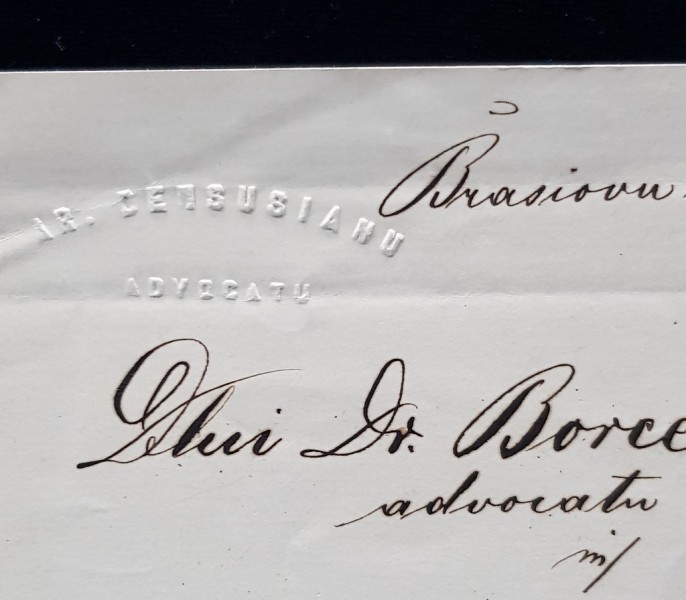 Brasiovu
AR. DENSUSIANU
ADVOCATU
Dlui Dr. Borce
advocatu
in/